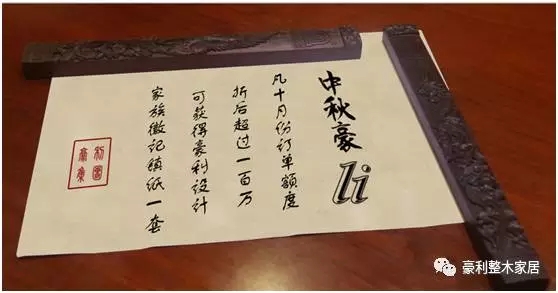 中秋豪li
凡十月份订单额度
折后超过一百万
可获得豪利设计
家族徽记镇纸一套
豪利整木家居